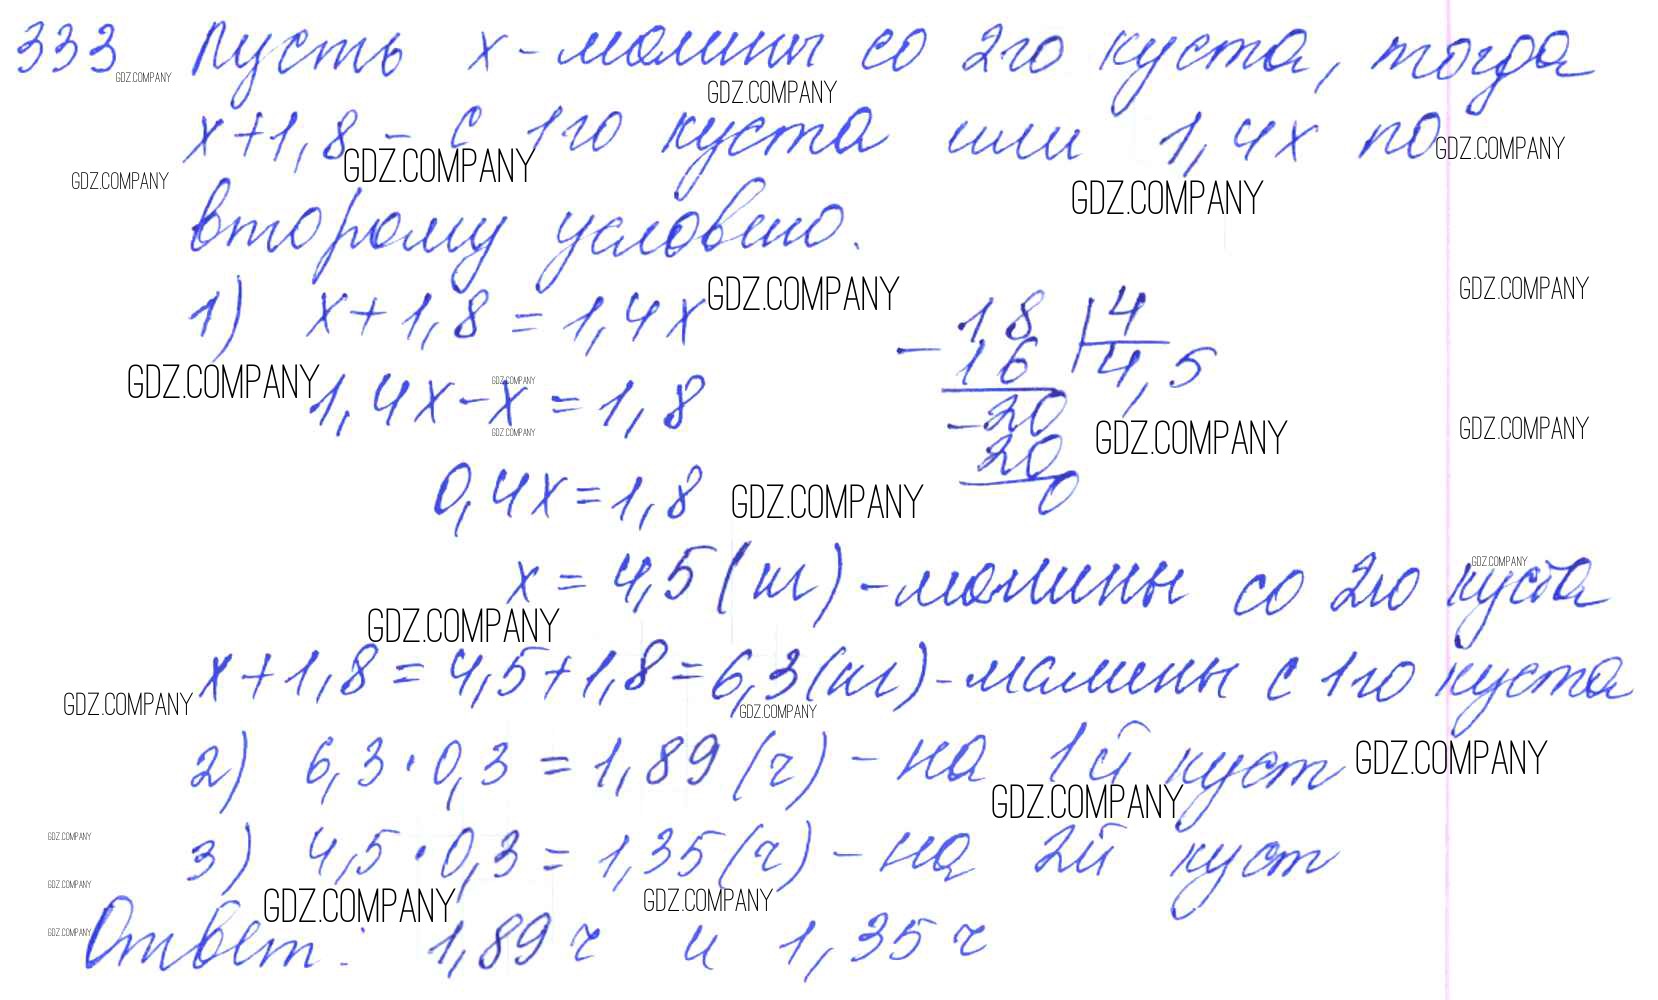 333 Пусть x - малины со 2го куста, тогда
GDZ.COMPANY
GDZ.COMPANY
x+1,8 - с 1го куста или 1,4x по
GDZ.COMPANY
GDZ.COMPANY
GDZ.COMPANY
GDZ.COMPANY
второму условию.
1) x+1,8 = 1,4x
GDZ.COMPANY
GDZ.COMPANY
- 18 | 4
16 4,5
GDZ.COMPANY
GDZ.COMPANY
1,4x - x = 1,8
GDZ.COMPANY
- 20
20
0
GDZ.COMPANY
GDZ.COMPANY
0,4x = 1,8
GDZ.COMPANY
x = 4,5 (кг) - малины со 2го куста
GDZ.COMPANY
GDZ.COMPANY
x+1,8 = 4,5+1,8 = 6,3 (кг) - малины с 1го куста
GDZ.COMPANY
GDZ.COMPANY
2) 6,3 · 0,3 = 1,89 (ч) - на 1й куст
GDZ.COMPANY
GDZ.COMPANY
3) 4,5 · 0,3 = 1,35 (ч) - на 2й куст
GDZ.COMPANY
GDZ.COMPANY
GDZ.COMPANY
GDZ.COMPANY
Ответ: 1,89 ч и 1,35 ч
GDZ.COMPANY